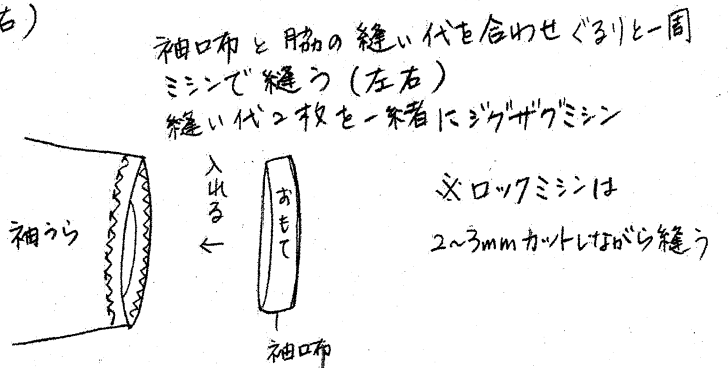 右)
袖口布と脇の縫い代を合わせぐるりと一周
ミシンで縫う(左右)
縫い代2枚を一緒にジグザグミシン
入れる
←
おもて
袖うら
袖口布
※ロックミシンは
2~3mmカットしながら縫う